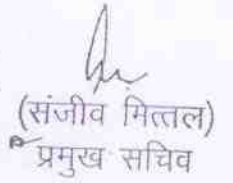 (संजीव मित्तल)
प्रमुख सचिव